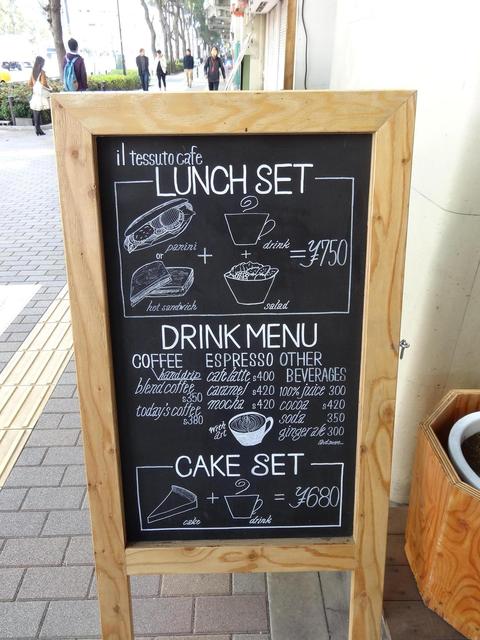 il tessuto cafe
LUNCH SET
panini
or
hot sandwich
+
drink
+
salad
=¥750
DRINK MENU
COFFEE
hand drip
blend coffee
$350
today's coffee
$380
ESPRESSO
cafe latte $400
caramel $420
mocha $420
with art
OTHER BEVERAGES
100% juice 300
cocoa $420
soda 350
ginger ale 300
CAKE SET
cake
+
drink
= ¥680